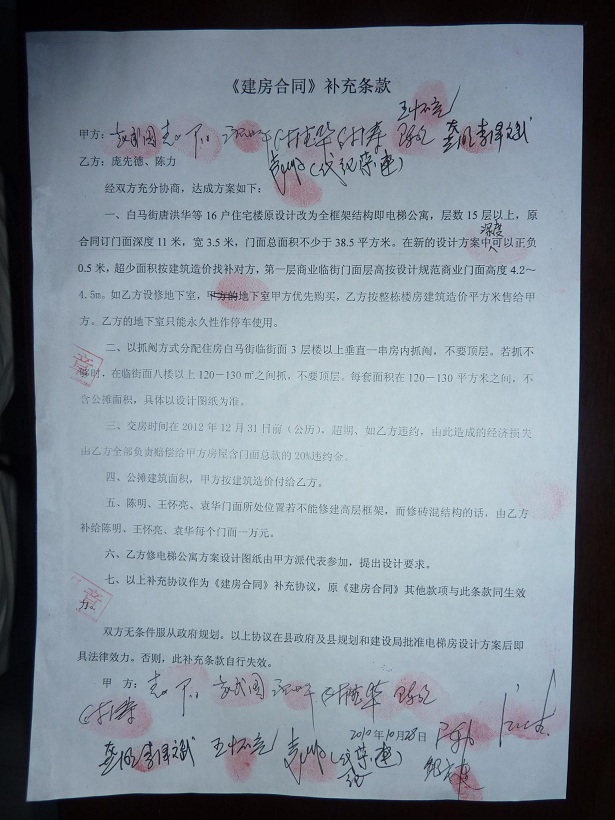 《建房合同》补充条款
甲方：
乙方：庞先德、陈力
经双方充分协商，达成方案如下：
一、白马街唐洪华等 16 户住宅楼原设计改为全框架结构即电梯公寓，层数 15 层以上，原
合同订门面深度 11 米，宽 3.5 米，门面总面积不少于 38.5 平方米。在新的设计方案中深度可以正负
0.5 米，超少面积按建筑造价找补对方，第一层商业临街门面层高按设计规范商业门面高度 4.2～
4.5m。如乙方设修地下室，甲方的地下室甲方优先购买，乙方按整栋楼房建筑造价平方米售给甲
方、乙方的地下室只能永久性作停车使用。
二、以抓阄方式分配住房白马街临街面 3 层楼以上垂直一串房内抓阄，不要顶层。若抓不
够时，在临街面八楼以上 120－130 ㎡之间抓，不要顶层。每套面积在 120－130 平方米之间，不
含公摊面积，具体以设计图纸为准。
三、交房时间在 2012 年 12 月 31 日前（公历），超期、如乙方违约，由此造成的经济损失
由乙方全部负责赔偿给甲方房屋含门面总款的 20%违约金。
四、公摊建筑面积，甲方按建筑造价付给乙方。
五、陈明、王怀亮、袁华门面所处位置若不能修建高层框架，而修砖混结构的话，由乙方
补给陈明、王怀亮、袁华每个门面一万元。
六、乙方修电梯公寓方案设计图纸由甲方派代表参加，提出设计要求。
七、以上补充协议作为《建房合同》补充协议，原《建房合同》其他款项与此条款同生效
力。
双方无条件服从政府规划，以上协议在县政府及县规划和建设局批准电梯房设计方案后即
具法律效力。否则，此补充条款自行失效。
甲 方：
2010年10月28日